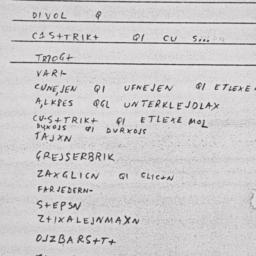 DIVOL Q
C1S+TRIK+ QI CU S...
TBIOG+
VARI-
CUNEJEN QI UFNEJEN QI ETLEXE
ALKBES QGL UNTERKLEJDLAX
CU-S+TRIK+ QI ETLEXE MOL
DUXOJS QI DURXOJS
TAJXN
GREJSERBRIK
ZAXGLICN QI GLIC+N
FARJEDERN-
S+EPSN
Z+IXALEJNMAXN
OJZBARS+T+